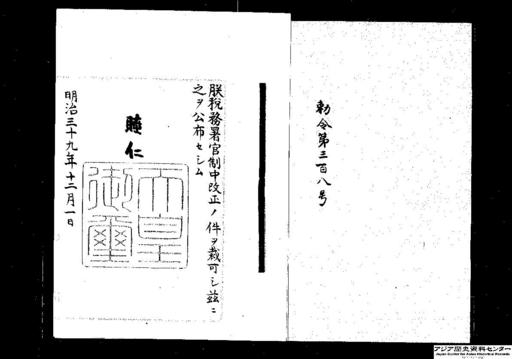 勅令第三百八号
朕税務署官制中改正ノ件ヲ裁可シ茲ニ
之ヲ公布セシム
睦仁
天皇
御璽
明治三十九年十二月一日
アジア歴史資料センター
Japan Center for Asian Historical Records